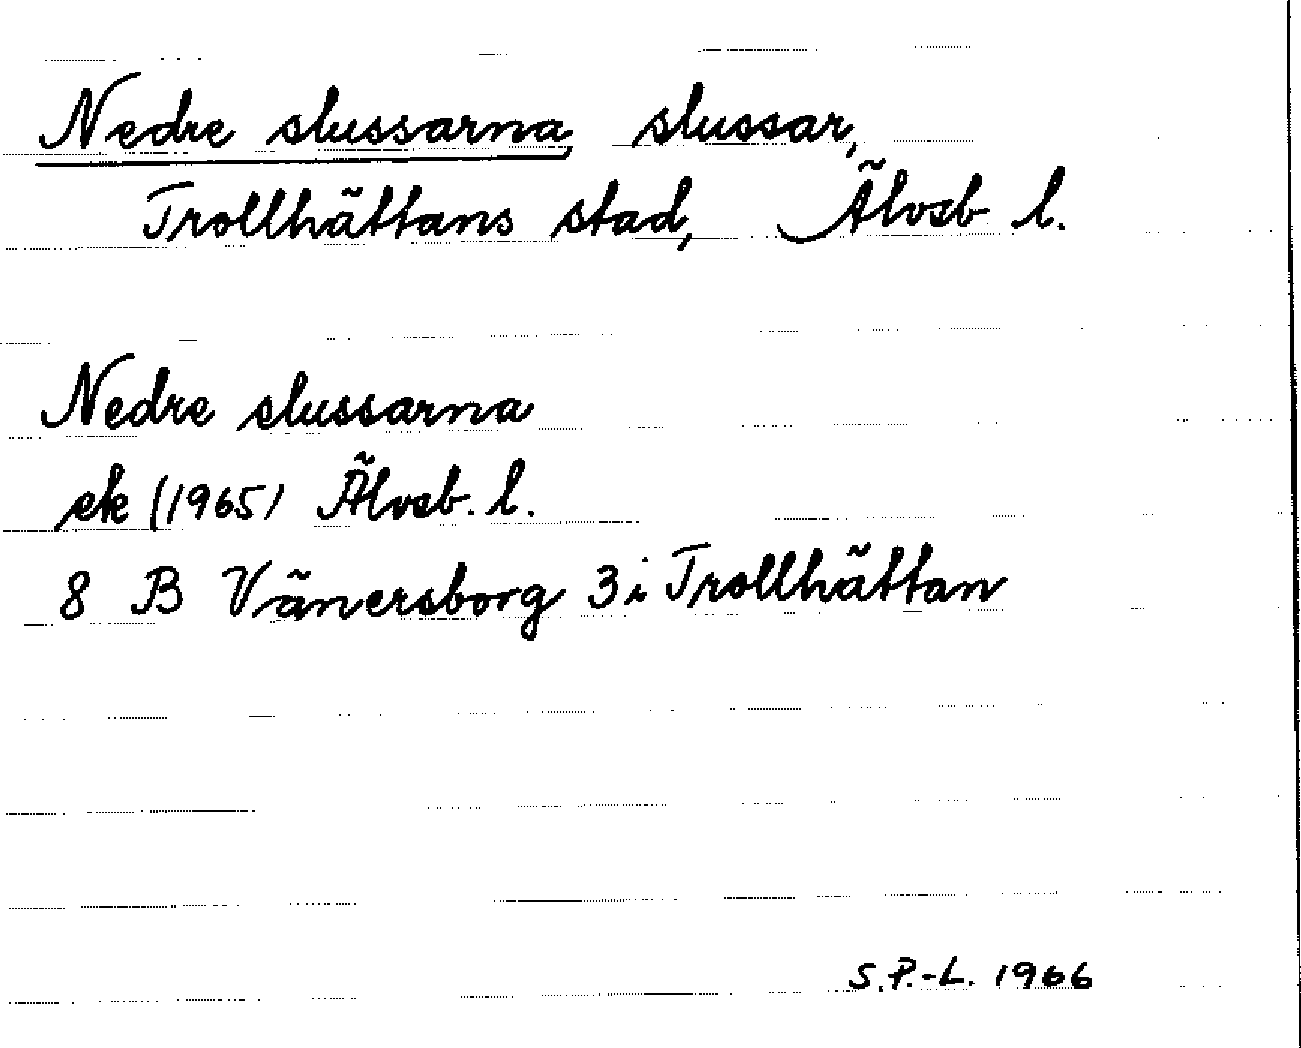 Nedre slussarna, slussar,
Trollhättans stad, Älvsb l.
Nedre slussarna
ek (1965) Älvsb. l.
8 B Vänersborg 3 i Trollhättan
S.P.-L. 1966